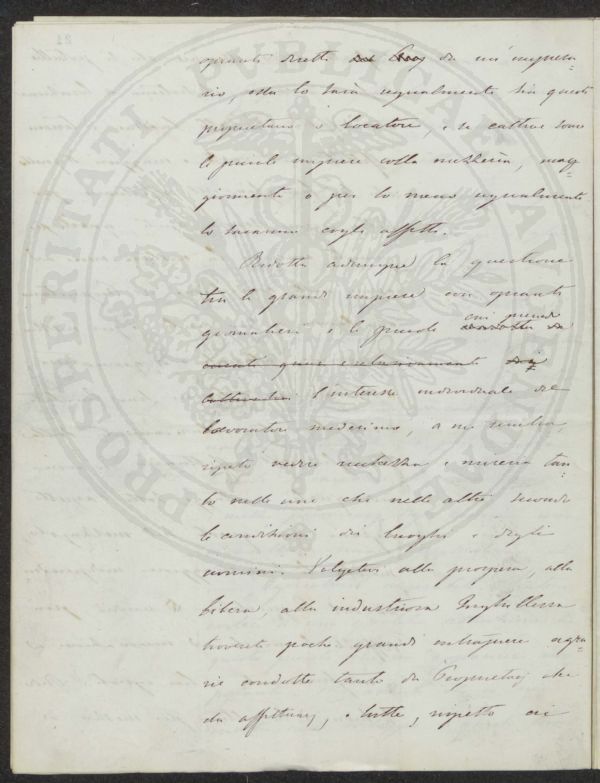 operanti diretti da un' impresa-
rio, essa lo sarà ugualmente sia questi
proprietario o locatore, e se cattive sono
le grandi imprese colla mezzeria, mag-
giormente o per lo meno ugualmente
lo saranno cogli affitti.
Ridotta adunque la questione
tra le grandi imprese con operanti
giornalieri e le piccole cui prende
l'interesse individuale del
lavoratore medesimo, a me sembra,
ripeto vedere ricchezza e miseria tan-
to nelle une che nelle altre secondo
le condizioni dei luoghi e degli
uomini. Volgetevi alla prospera, alla
libera, alla industriosa Inghilterra
troverete poche grandi intraprese agra-
rie condotte tanto da Proprietarj che
da affittuarj, e tutte, rispetto ai
PROSPERITATI PUBLICAE AUGENDAE